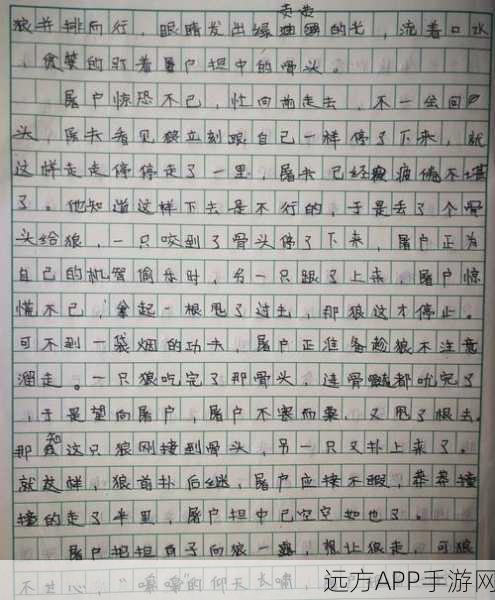 贪婪
狼并排而行，眼睛发出绿油油的光，流着口水
，贪婪的盯着屠户担中的骨头。
屠户惊恐不已，忙向前走去，不一会回
头，屠夫看见狼立刻跟自己一样停了下来，就
这样走走停停走了一里，屠夫已经疲倦不堪
了。他知道这样下去是不行的，于是丢了个骨
头给狼，一只咬到了骨头停了下来，屠户正为
自己的机智偷乐时，另一只跟了上来，屠户惊
慌不已，拿起一根甩了过去，那狼这才停止。
可不到一袋烟的功夫，屠户正准备趁狼不注意
溜走。一只狼吃完了那骨头，连骨髓都吮完了
，于是望向屠户，屠户不寒而栗，又甩了根去。
那知这只狼刚接到骨头，另一只又扑上来了。
就这样，狼首扑后继，屠户应接不暇，莽莽撞
撞的走了半里，屠户担中已空空如也了。
屠户把担子向狼一露，想让狼走，可狼
不甘心，“嗥嗥”的仰天长啸，
远方APP手游网